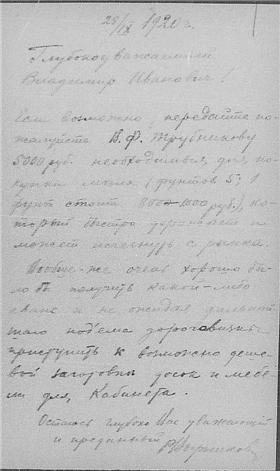 28/IX 1920 г.
Глубокоуважаемый
Владимир Иванович!
Если возможно, передайте по-
жалуйста В. Ф. Трубникову
5000 руб. необходимыя для по-
купки масла (фунтов 5; 1
фунт стоит 800-1000 руб.), ко-
торый быстро и
может исчезнуть с рынка.
Вообще-же очень хорошо бы-
ло бы получить какой-либо
аванс и не ожидая дальней-
шаго подъема дороговизны
приступить к возможно деше-
вой заготовки досок и мебе-
ли для Кабинета.
Остаюсь глубоко Вас уважающий
и преданный